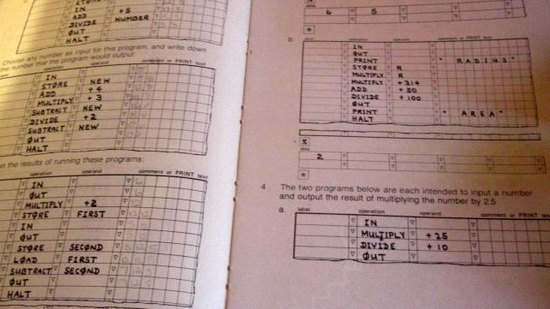 IN
ADD +5
DIVIDE NUMBER
OUT
HALT
Choose any number as input for this program, and write down
the number that the program would output:
operation operand comment or PRINT text
IN
STORE NEW
ADD +4
MULTIPLY +3
SUBTRACT NEW
DIVIDE +2
SUBTRACT NEW
OUT
HALT
the results of running these programs:
operation operand comment or PRINT text
IN
OUT
MULTIPLY +2
STORE FIRST
IN
OUT
STORE SECOND
LOAD FIRST
SUBTRACT SECOND
OUT
HALT
6 5
b.
operation operand comment or PRINT text
IN
OUT
PRINT "RADIUS"
STORE R
MULTIPLY R
MULTIPLY +314
ADD +50
DIVIDE +100
OUT
PRINT "AREA"
HALT
2
*
4 The two programs below are each intended to input a number
and output the result of multiplying the number by 2.5
a. label operation operand comment or PRINT text
IN
MULTIPLY +25
DIVIDE +10
OUT